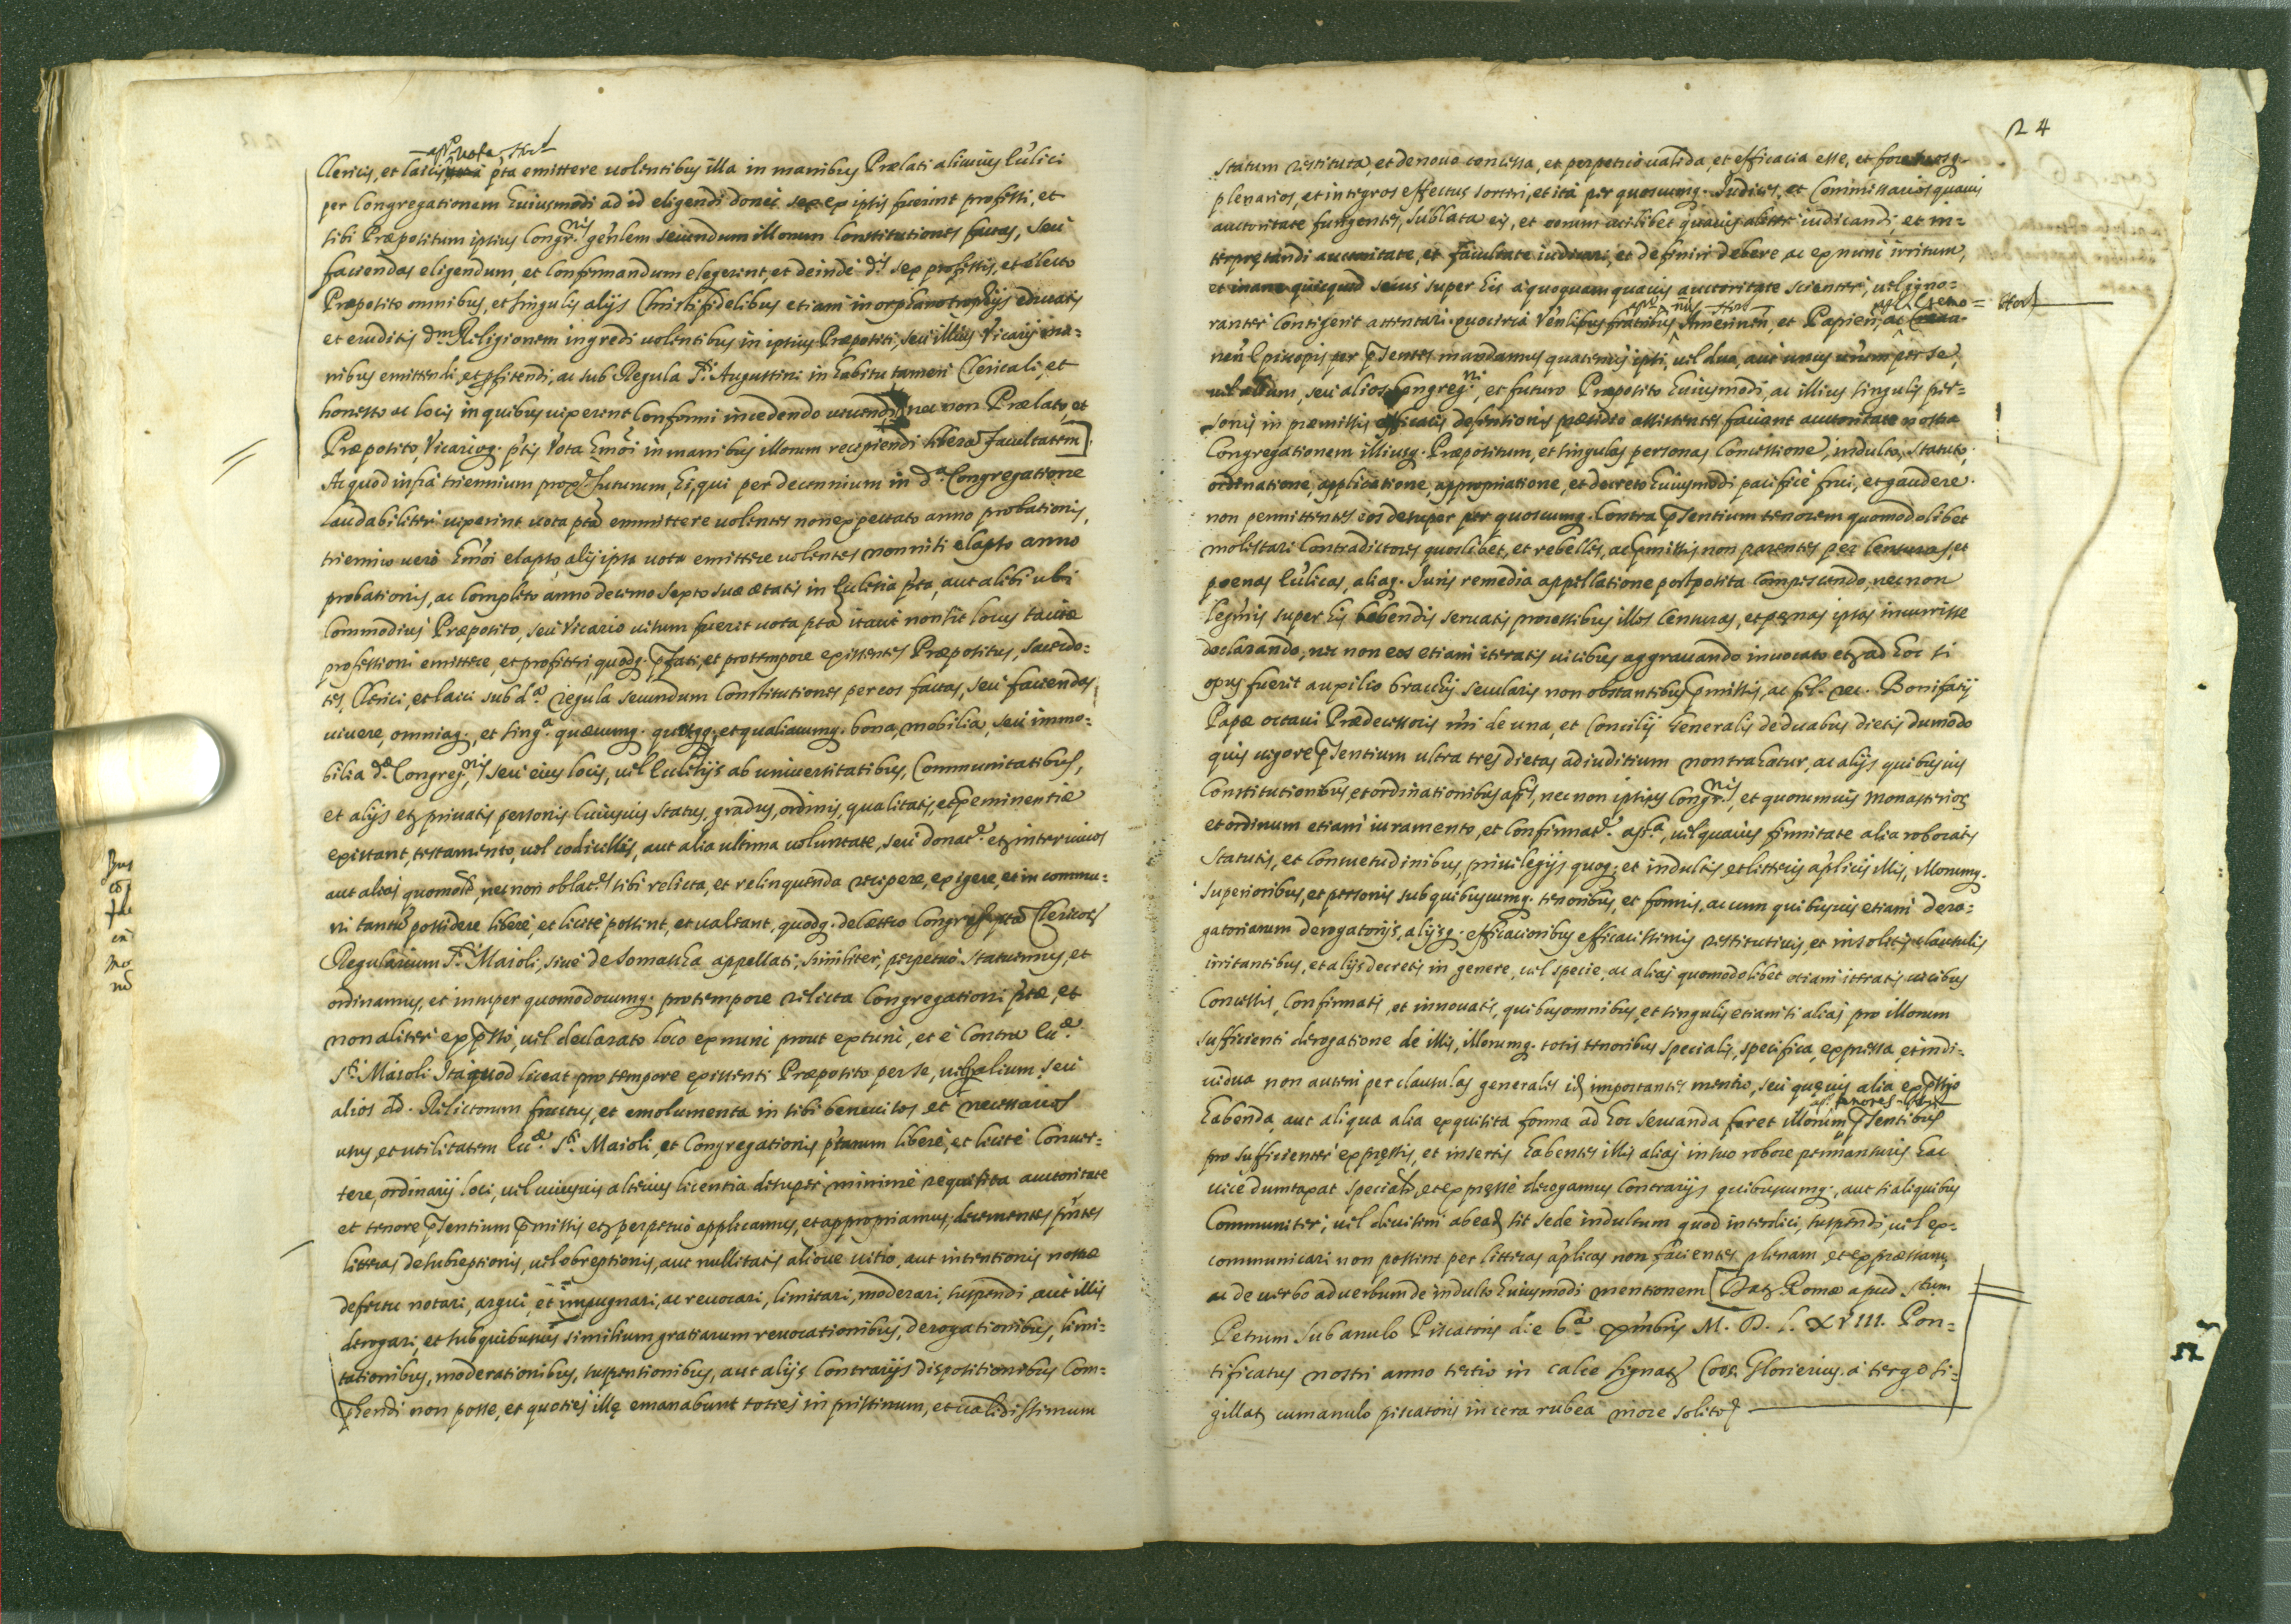 app.^d vota, stet
Clericis, et laicis pta emittere volentibus illa in manibus Prælati alicuius Ecc'lici
per Congregationem huiusmodi ad id eligendi donec sex ex ipsis fuerint professi, et
sibi Præpositum ipsius Congr.nis gen'lem secundum illorum Constitutiones factas, seu
faciendas eligendum, et confirmandum elegerint, et deinde d.is sex professis, et electo
Præposito omnibus, et singulis alijs Christifidelibus etiam in orphanotrophijs educatis
et eruditis d.m Religionem ingredi volentibus in ipsius Præpositi, seu illius Vicarij ma=
nibus emittendi, et profitendi, ac sub Regula S.ti Augustini in habitu tamen Clericali, et
honesto ac locis in quibus vixerint conformi incedendo vivendi nec non Prælato, et
Præposito, Vicarioq. ptis vota hm'oi in manibus illorum recipiendi libera facultatem].
Ac quod infra triennium prox.e futurum, hi, qui per decennium in d.a Congregatione
laudabiliter vixerint vota pta emmittere volentes non expectato anno probationis,
triennio vero hm'oi elapso, alij ipsa vota emittere volentes non nisi elapso anno
probationis, ac completo anno decimo sexto suæ ætatis in Ecclesia p'ta, aut alibi ubi
commodius Præposito, seu Vicario visum fuerit vota pta itaut non sit locus tacitæ
professioni emittere, et profiteri, quodq. p'fati, et pro tempore existentes Præpositus, Sacerdo=
tes, Clerici, et laici sub d.a regula secundum Constitutiones per eos factas, seu faciendas
vivere, omniaq., et sing.a quæcumq. quotq., et qualiacumq. bona, mobilia, seu immo=
bilia d.æ Congreg.nis, seu eius locis, vel Ecclesijs ab universitatibus, Communitatibus,
et alijs et privatis personis cuiusvis status, gradus, ordinis, qualitatis, et p'eminentiæ
existant, testamento, vel codicillis, aut alia ultima voluntate, seu donat.e et inter vivos
aut alias quomolt, nec non oblat.es sibi relicta, et relinquenda recipere, exigere, et in commu=
ni tantu' possidere libere, et licite possint, et valeant, quodq. de cætero Congreg. pta Clericor
Regularium S.ti Maioli, sive de Somascha appellati, similiter, perpetuo statuimus, et
ordinamus, et insuper quomodocumq. pro tempore relicta Congregationi p'tæ, et
non aliter exp'sso, vel declarato loco ex nunc prout ex tunc, et è contra Ecc.æ
S.ti Maioli Ita quod liceat pro tempore existenti Præposito per se, vel alium, seu
alios ad. Relictorum fructus, et emolumenta in sibi benevisos et necessarios
usus, et utilitatem Ecc.æ S.ti Maioli, et Congregationis p'tarum libere, et licite conver=
tere, ordinarij loci, vel cuiusvis alterius licentia desuper minime requisita auctoritate
et tenore p'sentium p'missis et perpetuo applicamus, et appropriamus, decernentes p'ntes
litteras de subreptionis, vel obreptionis, aut nullitatis aliove vitio, aut intentionis nostræ
defectu notari, argui, et impugnari, ac revocari, limitari, moderari, suspendi aut illis
derogari, et sub quibusvis similium gratiarum revocationibus, derogationibus, limi=
tationibus, moderationibus, suspensionibus, aut alijs contrarijs dispositionibus com=
p'hendi non posse, et quoties illę emanabunt toties in pristinum, et validissimum
24
statum restituta, et denovo concessa, et perpetuo valida, et efficacia esse, et fore, suosq.
plenarios, et integros effectus sortiri, et ita per quoscumq. Iudices, et Commissarios quavis
auctoritate fungentes, sublata eis, et eorum cuilibet quavis aliter iudicandi, et in=
terprętandi auctoritate, et facultate iudicari, et definiri debere ac ex nunc irritum,
et inane quicquid secus super his a quoquam quavis auctoritate scienter, vel igno=
ranter contigerit attentari quocirca Ven'libus fratribus Amerinen, et Papien, ac Cremo= stet
nen' Episcopis per p'sentes mandamus quatenus ipsi, vel duo, aut unus eorum per se,
vel alium, seu alios Congreg.ni, et futuro Præposito huiusmodi, ac illius singulis per=
sonis in præmissis efficacis defensionis præsidio assistentes faciant auctoritate nostra
Congregationem illiusq. Præpositum, et singulas personas Concessione, indulto, Statuto,
ordinatione, applicatione, appropriatione, et decreto huiusmodi pacifice frui, et gaudere.
non permittentes eos desuper per quoscumq. contra p'sentium tenorem quomodolibet
molestari Contradictores quoslibet, et rebelles, ac p'missis non parentes per censuras, et
poenas Ecc'licas, aliaq. Iuris remedia appellatione postposita compescendo, nec non
legi'mis super his habendis servatis processibus illos censuras, et pęnas ipsas incurrisse
declarando, nec non eos etiam iteratis vicibus aggravando invocato et ad hoc si
opus fuerit auxilio brachij secularis non obstantibus p'missis, ac fel. rec. Bonifatij
Papæ octavi Prædecessoris n'ri de una, et Concilij Generalis de duabus dietis dumodo
quis vigore p'sentium ultra tres dietas ad iuditium non trahatur, ac alijs quibusvis
Constitutionibus, et ordinationibus ap.cis, nec non ipsius Congr.nis, et quorumvis monasterior
et ordinum etiam iuramento, et confirmat.e ap.ca, vel quavis firmitate alia roboratis
Statutis, et consuetudinibus, privilegijs quoq. et indultis, et litteris ap'licis illis, illorumq.
superioribus, et personis sub quibuscumq. tenoribus, et formis, ac cum quibusvis etiam dero=
gatoriarum derogatorijs, alijsq. efficacioribus efficacissimis restitutivis, et insolitis clausulis
irritantibus, et alijs decretis in genere, vel specie, ac alias quomodolibet etiam iteratis vicibus
concessis, confirmatis, et innovatis, quibus omnibus, et singulis etiam si alias pro illorum
sufficienti derogatione de illis, illorumq. totis tenoribus specialis, specifica, expressa, et indi=
vidua non autem per clausulas generales id importantes mentio, seu quęvis alia exp'ssio
habenda, aut aliqua alia exquisita forma ad hoc servanda foret illorum tenores p'sentibus
pro sufficienter expręssis, et insertis habentes illis alias in suo robore permansuris hac
vice dumtaxat specialr, et expręsse derogamus Contrarijs quibuscumq., aut si aliquibus
Communiter, vel divisim ab ead sit sede indultum quod interdici, suspendi, vel ex=
communicari non possint per litteras ap'licas non facientes plenam, et expræssam,
ac de verbo ad verbum de indulto huiusmodi mentionem [Dat Romæ apud S.tum
Petrum sub anulo Piscatoris die 6.a xm'bris M. D. L. XVIII. Pon=
tificatus nostri anno tertio in calce signat Cæs. Glorierius. à tergo si=
gillat cum anulo piscatoris in cera rubea more solito